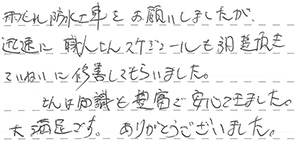 雨もれ防水工事をお願いしましたが、
迅速に職人さんスケジュールも調整頂き
ていねいに修善してもらいました。
さんは知識も豊富で安心できました。
大満足です。ありがとうございました。